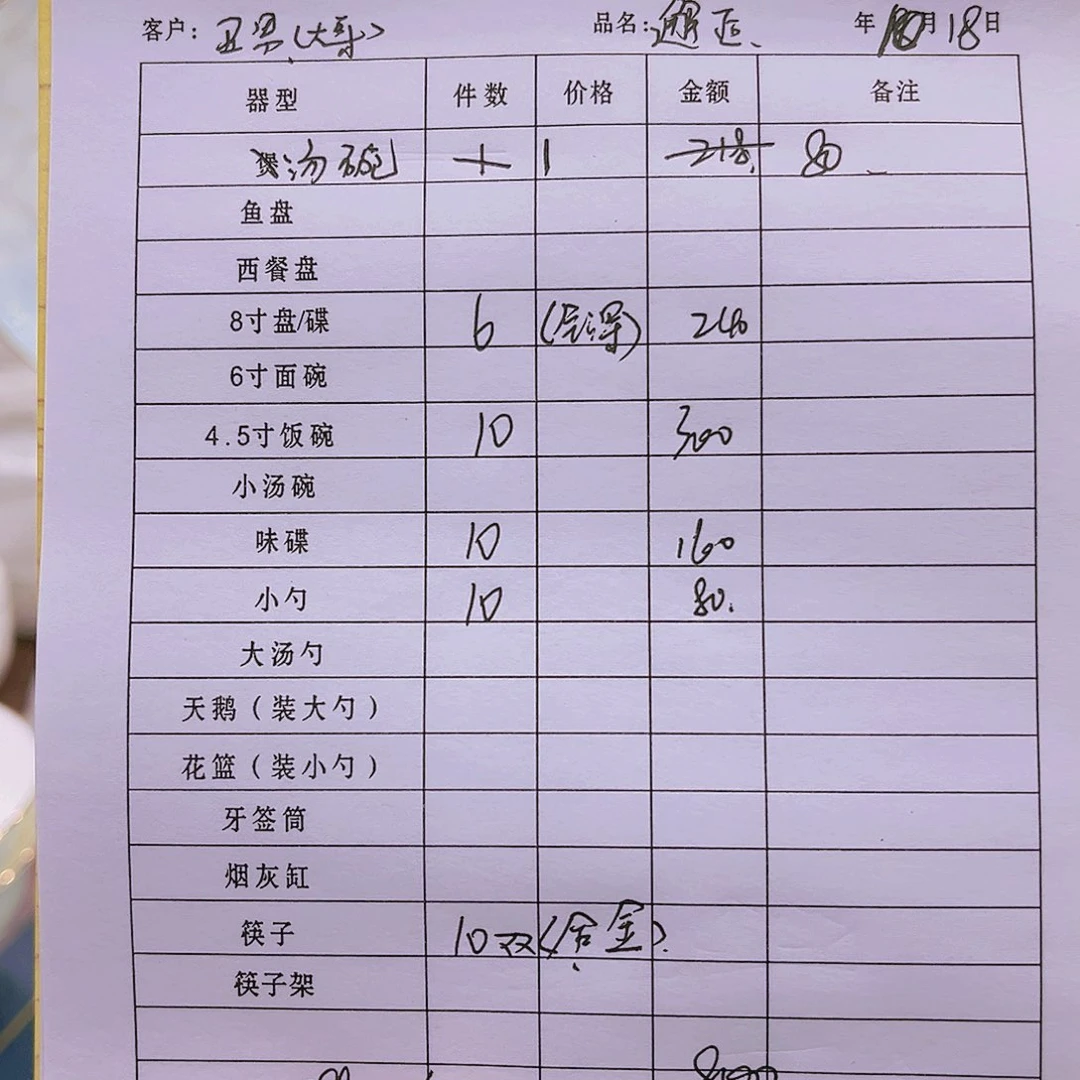 客户: 卫男(大哥) 品名: 邂逅 年 10月18日
器型 件数 价格 金额 备注
汤碗 1 80
鱼盘
西餐盘
8寸盘/碟 6 (后深) 240
6寸面碗
4.5寸饭碗 10 300
小汤碗
味碟 10 160
小勺 10 80.
大汤勺
天鹅(装大勺)
花篮(装小勺)
牙签筒
烟灰缸
筷子 10双(合金)
筷子架